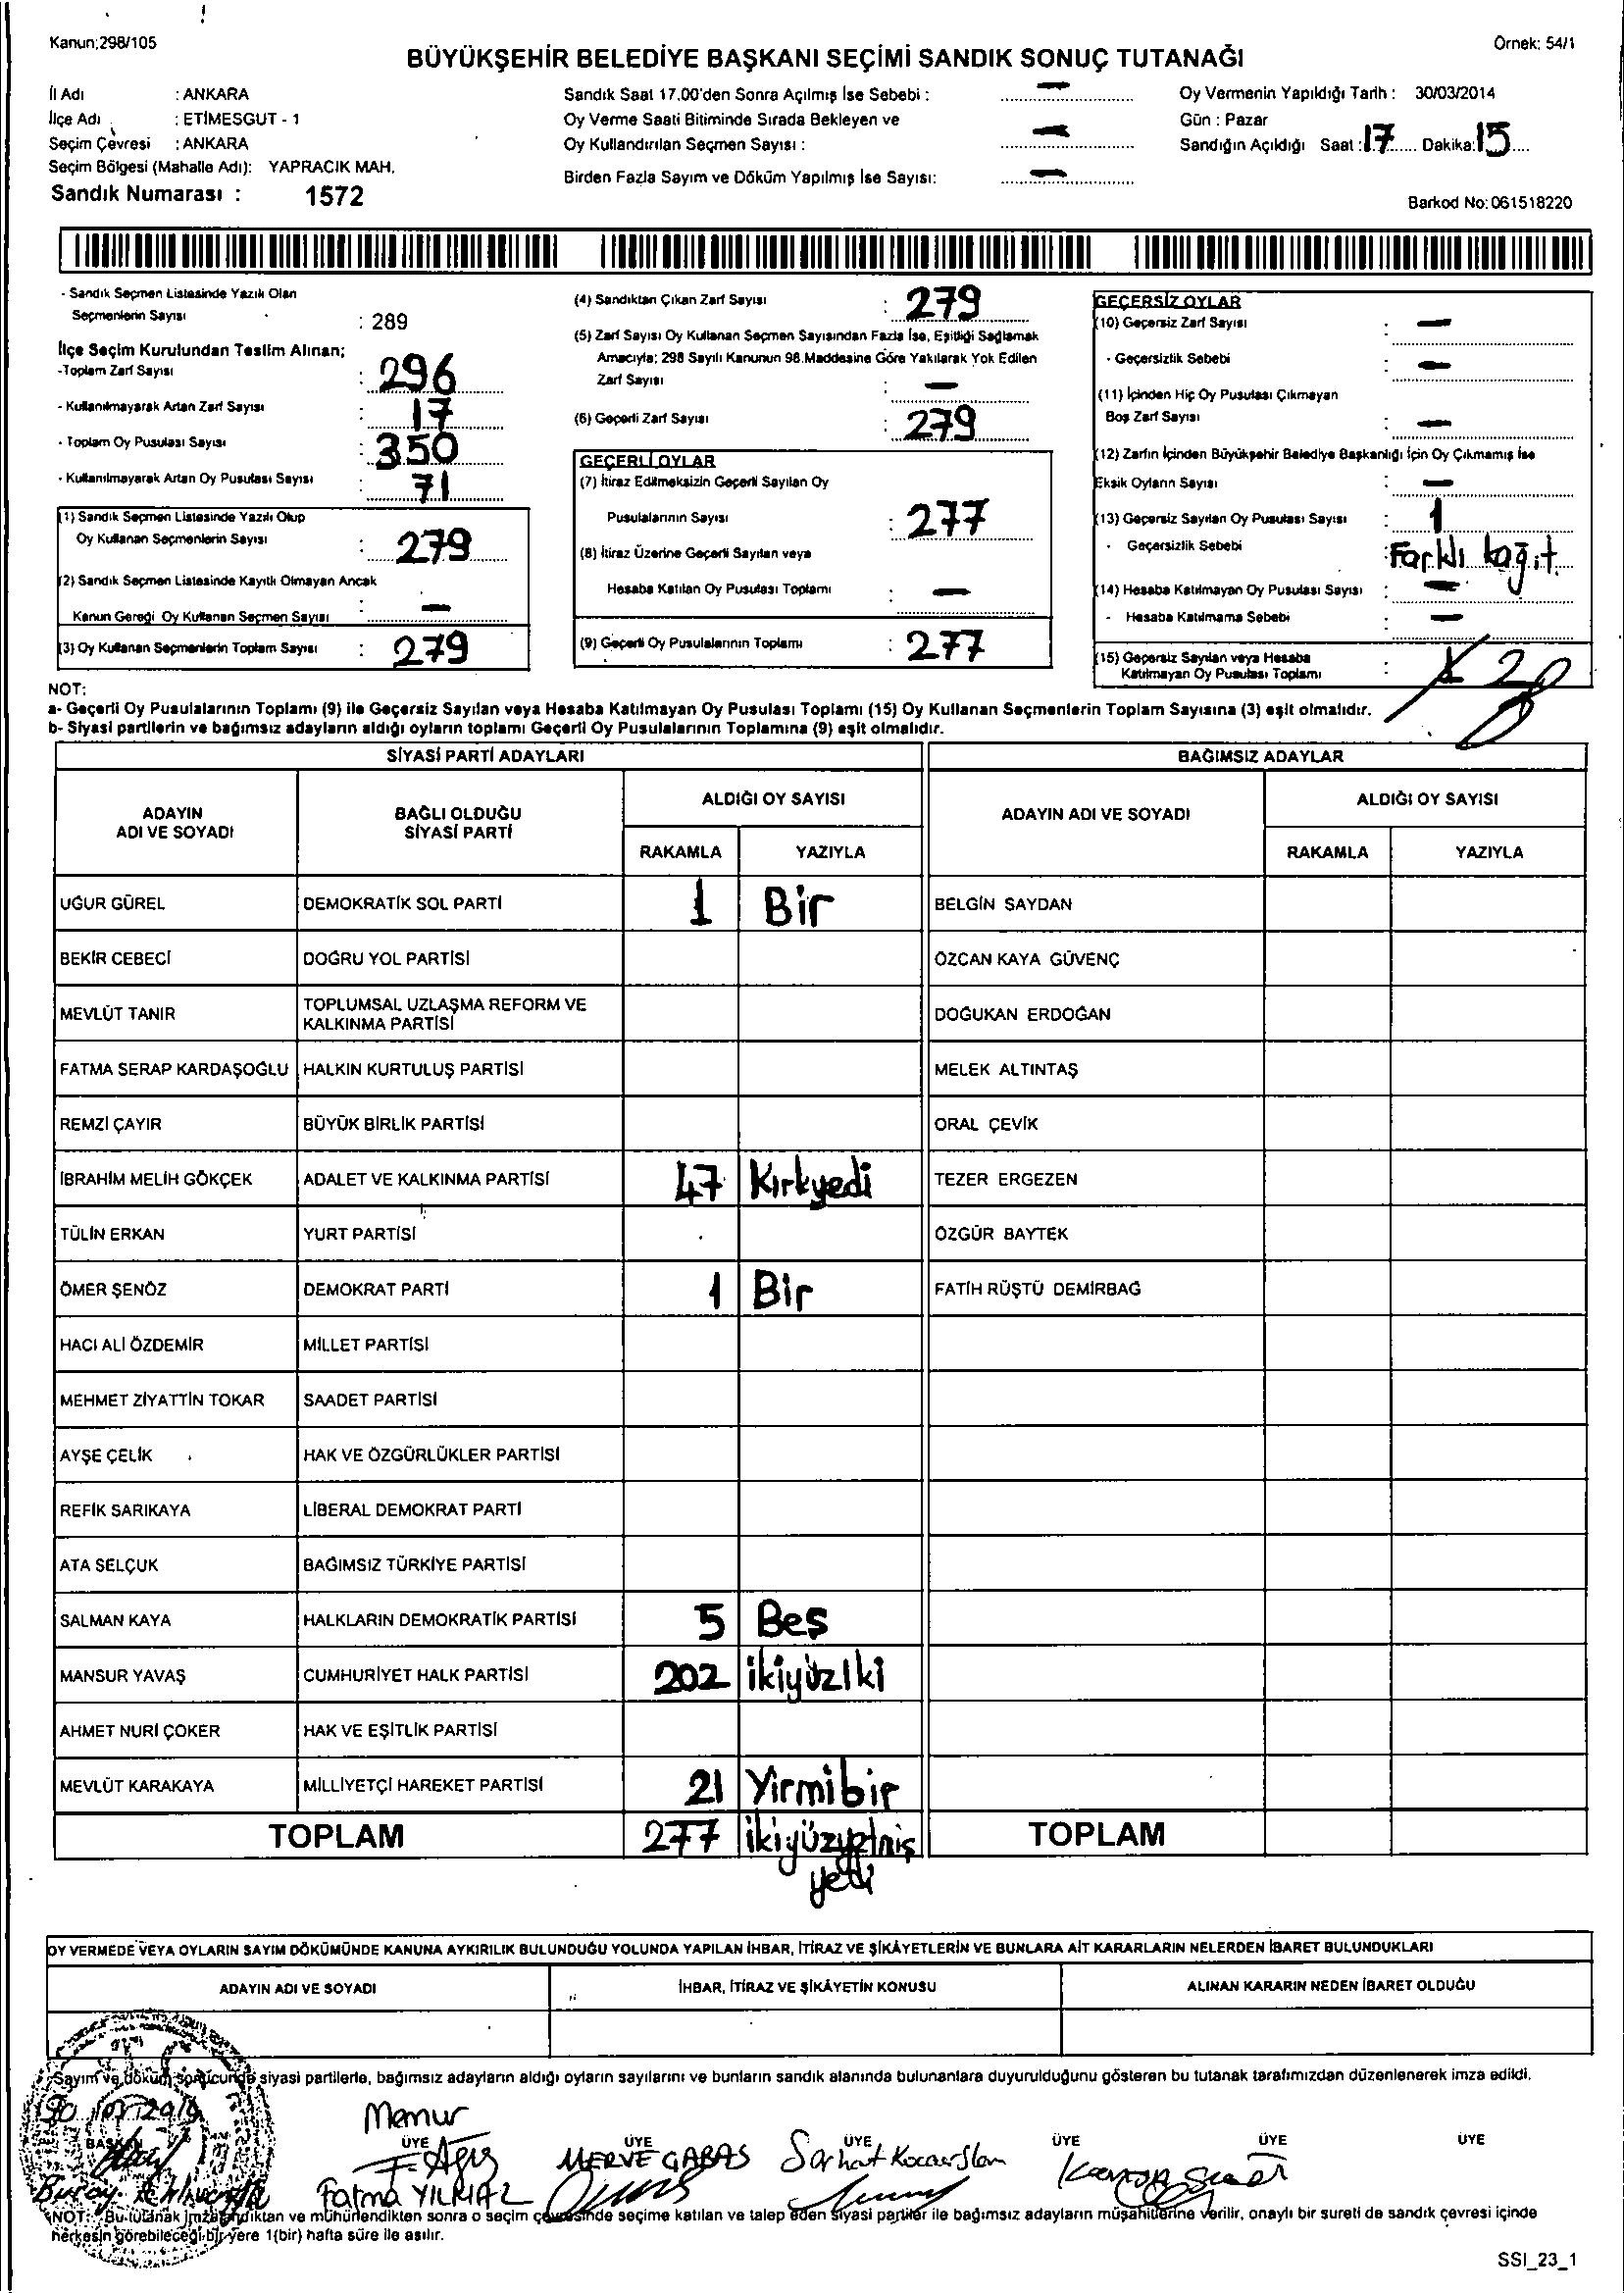 Kanun:298/105
Örnek: 54/1
BÜYÜKŞEHİR BELEDİYE BAŞKANI SEÇİMİ SANDIK SONUÇ TUTANAĞI
İl Adı : ANKARA
İlçe Adı : ETİMESGUT - 1
Seçim Çevresi : ANKARA
Seçim Bölgesi (Mahalle Adı): YAPRACIK MAH.
Sandık Numarası : 1572
Sandık Saat 17.00'den Sonra Açılmış İse Sebebi : -
Oy Verme Saati Bitiminde Sırada Bekleyen ve
Oy Kullandırılan Seçmen Sayısı : -
Birden Fazla Sayım ve Döküm Yapılmış İse Sayısı: -
Oy Vermenin Yapıldığı Tarih : 30/03/2014
Gün : Pazar
Sandığın Açıldığı Saat : 17 Dakika: 15
Barkod No: 061518220
- Sandık Seçmen Listesinde Yazılı Olan
Seçmenlerin Sayısı : 289
İlçe Seçim Kurulundan Teslim Alınan;
-Toplam Zarf Sayısı : 296
- Kullanılmayarak Artan Zarf Sayısı : 17
- Toplam Oy Pusulası Sayısı : 350
- Kullanılmayarak Artan Oy Pusulası Sayısı : 71
(1) Sandık Seçmen Listesinde Yazılı Olup
Oy Kullanan Seçmenlerin Sayısı : 279
(2) Sandık Seçmen Listesinde Kayıtlı Olmayan Ancak
Kanun Gereği Oy Kullanan Seçmen Sayısı : -
(3) Oy Kullanan Seçmenlerin Toplam Sayısı : 279
(4) Sandıktan Çıkan Zarf Sayısı : 279
(5) Zarf Sayısı Oy Kullanan Seçmen Sayısından Fazla İse, Eşitliği Sağlamak
Amacıyla; 298 Sayılı Kanunun 98.Maddesine Göre Yakılarak Yok Edilen
Zarf Sayısı : -
(6) Geçerli Zarf Sayısı : 279
GEÇERLİ OYLAR
(7) İtiraz Edilmeksizin Geçerli Sayılan Oy
Pusulalarının Sayısı : 277
(8) İtiraz Üzerine Geçerli Sayılan veya
Hesaba Katılan Oy Pusulası Toplamı : -
(9) Geçerli Oy Pusulalarının Toplamı : 277
GEÇERSİZ OYLAR
(10) Geçersiz Zarf Sayısı : -
- Geçersizlik Sebebi : -
(11) İçinden Hiç Oy Pusulası Çıkmayan
Boş Zarf Sayısı : -
(12) Zarfın İçinden Büyükşehir Belediye Başkanlığı İçin Oy Çıkmamış İse
Eksik Oyların Sayısı : -
(13) Geçersiz Sayılan Oy Pusulası Sayısı : 1
- Geçersizlik Sebebi : Farklı kağıt
(14) Hesaba Katılmayan Oy Pusulası Sayısı : -
- Hesaba Katılmama Sebebi : -
(15) Geçersiz Sayılan veya Hesaba
Katılmayan Oy Pusulası Toplamı : 2
NOT:
a- Geçerli Oy Pusulalarının Toplamı (9) ile Geçersiz Sayılan veya Hesaba Katılmayan Oy Pusulası Toplamı (15) Oy Kullanan Seçmenlerin Toplam Sayısına (3) eşit olmalıdır.
b- Siyasi partilerin ve bağımsız adayların aldığı oyların toplamı Geçerli Oy Pusulalarının Toplamına (9) eşit olmalıdır.
SİYASİ PARTİ ADAYLARI BAĞIMSIZ ADAYLAR
ADAYIN ADI VE SOYADI BAĞLI OLDUĞU SİYASİ PARTİ ALDIĞI OY SAYISI ADAYIN ADI VE SOYADI ALDIĞI OY SAYISI
RAKAMLA YAZIYLA RAKAMLA YAZIYLA
UĞUR GÜREL DEMOKRATİK SOL PARTİ 1 Bir BELGİN SAYDAN
BEKİR CEBECİ DOĞRU YOL PARTİSİ ÖZCAN KAYA GÜVENÇ
MEVLÜT TANIR TOPLUMSAL UZLAŞMA REFORM VE KALKINMA PARTİSİ DOĞUKAN ERDOĞAN
FATMA SERAP KARDAŞOĞLU HALKIN KURTULUŞ PARTİSİ MELEK ALTINTAŞ
REMZİ ÇAYIR BÜYÜK BİRLİK PARTİSİ ORAL ÇEVİK
İBRAHİM MELİH GÖKÇEK ADALET VE KALKINMA PARTİSİ 47 Kırkyedi TEZER ERGEZEN
TÜLİN ERKAN YURT PARTİSİ ÖZGÜR BAYTEK
ÖMER ŞENÖZ DEMOKRAT PARTİ 1 Bir FATİH RÜŞTÜ DEMİRBAĞ
HACI ALİ ÖZDEMİR MİLLET PARTİSİ
MEHMET ZİYATTİN TOKAR SAADET PARTİSİ
AYŞE ÇELİK HAK VE ÖZGÜRLÜKLER PARTİSİ
REFİK SARIKAYA LİBERAL DEMOKRAT PARTİ
ATA SELÇUK BAĞIMSIZ TÜRKİYE PARTİSİ
SALMAN KAYA HALKLARIN DEMOKRATİK PARTİSİ 5 Beş
MANSUR YAVAŞ CUMHURİYET HALK PARTİSİ 202 ikiyüziki
AHMET NURİ ÇOKER HAK VE EŞİTLİK PARTİSİ
MEVLÜT KARAKAYA MİLLİYETÇİ HAREKET PARTİSİ 21 Yirmibir
TOPLAM 277 ikiyüzyetmiş TOPLAM
yedi
OY VERMEDE VEYA OYLARIN SAYIM DÖKÜMÜNDE KANUNA AYKIRILIK BULUNDUĞU YOLUNDA YAPILAN İHBAR, İTİRAZ VE ŞİKÂYETLERİN VE BUNLARA AİT KARARLARIN NELERDEN İBARET BULUNDUKLARI
ADAYIN ADI VE SOYADI İHBAR, İTİRAZ VE ŞİKÂYETİN KONUSU ALINAN KARARIN NEDEN İBARET OLDUĞU
Sayım ve döküm sonucunda siyasi partilerle, bağımsız adayların aldığı oyların sayılarını ve bunların sandık alanında bulunanlara duyurulduğunu gösteren bu tutanak tarafımızdan düzenlenerek imza edildi.
Memur
BAŞKAN ÜYE ÜYE ÜYE ÜYE ÜYE ÜYE
MERVE Serhat Kocaerslan
Fatma YILMAZ
NOT: Bu tutanak imzalandıktan ve mühürlendikten sonra o seçim çevresinde seçime katılan ve talep eden siyasi partiler ile bağımsız adayların müşahitlerine verilir, onaylı bir sureti de sandık çevresi içinde
herkesin görebileceği bir yere 1(bir) hafta süre ile asılır.
SSI_23_1